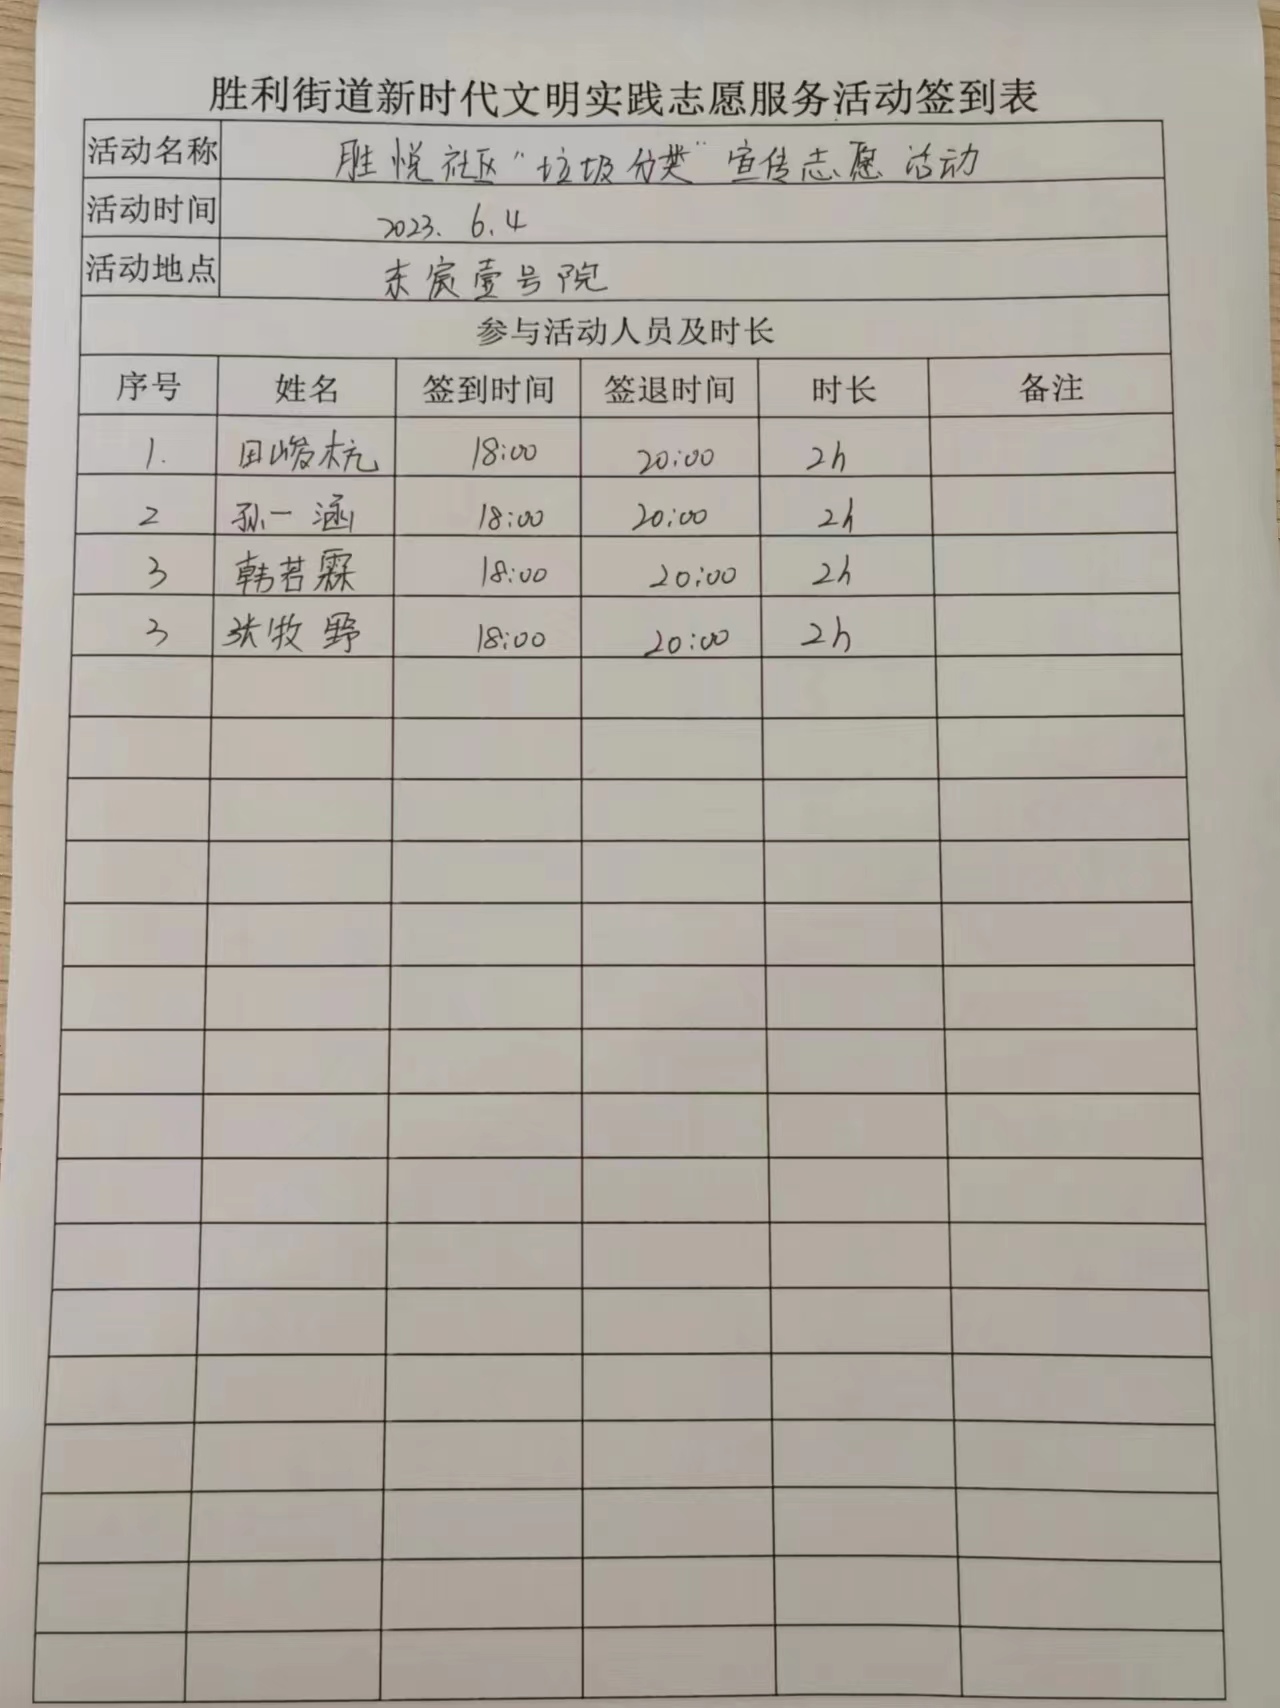 胜利街道新时代文明实践志愿服务活动签到表
活动名称 胜悦社区“垃圾分类”宣传志愿活动
活动时间 2023. 6.4
活动地点 东宸壹号院
参与活动人员及时长
序号 姓名 签到时间 签退时间 时长 备注
1. 田峻杭 18:00 20:00 2h
2 孙一涵 18:00 20:00 2h
3 韩若霖 18:00 20:00 2h
3 张牧野 18:00 20:00 2h